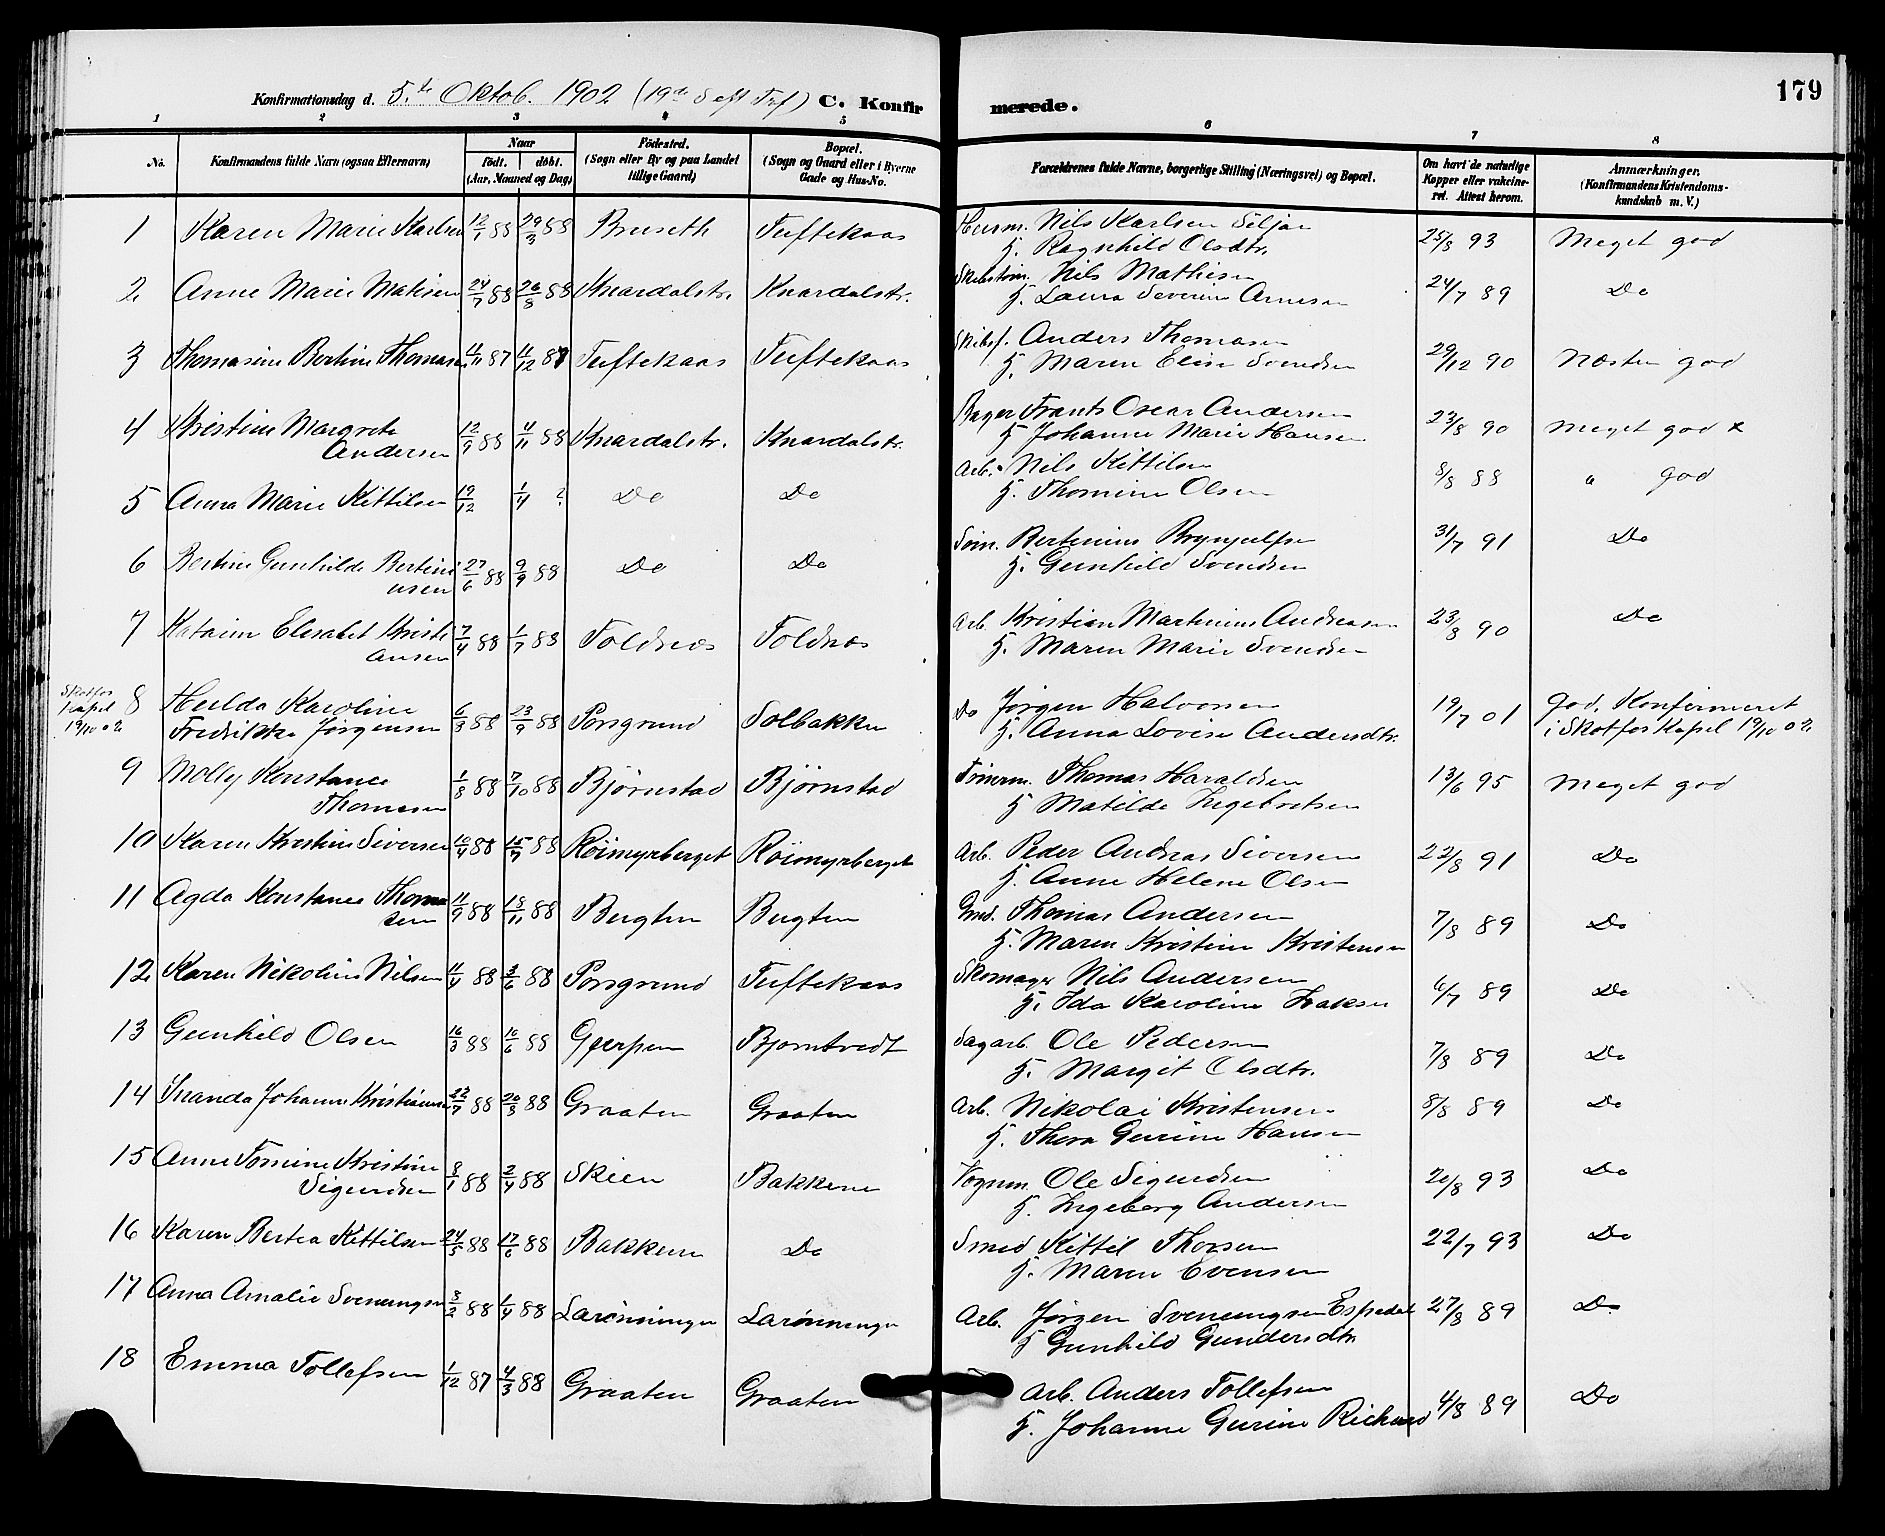 Konfirmationsdag d. 5.te Oktob. 1902 (19de S eft Tref) C. Konfirmerede.
179
1 2 3 4 5 6 7 8
No. Konfirmandens fulde Navn (ogsaa Efternavn) Naar født. døbt. (Aar, Maaned og Dag) Fødested. (Sogn eller By og paa Landet tillige Gaard) Bopæl. (Sogn og Gaard eller i Byerne Gade og Hus-No. Forældrenes fulde Navne, borgerlige Stilling (Næringsvei) og Bopæl. Om havt de naturlige Kopper eller vakcineret. Attest herom. Anmærkninger. (Konfirmandens Kristendomskundskab m. V.)
1 Karen Marie Karlsen 12/1 88 29/3 88 Bruseth Tuftekaas Husm. Nils Karlsen Siljan 25/8 93 Meget god
H. Ragnhild Olsdtr.
2 Anne Marie Mathisen 24/7 88 26/8 88 Knardalstr. Knardalstr. Nils Mathisen 24/7 89 Do
H. Laura Severine Arnesen
3 Thomasine Bertine Thomasen 11/11 87 11/12 87 Tuftekaas Tuftekaas Skibsf. Anders Thomasen 29/12 90 Næsten god
H. Maren Elise Svendsen
4 Kristine Margrete Andersen 12/9 88 4/11 88 Knardalstr. Knardalstr. Bager Frants Oscar Andersen 23/8 90 Meget god x
H Johanne Marie Hansen
5 Anna Marie Kittilsen 19/12 1/4 ? Do Do Arb. Nils Kittilsen 8/8 88 " god
H. Thomine Olsen
6 Bertine Gunhilde Bertiniusen 27/6 88 9/9 88 Do Do Søm. Bertinius Brynjulfsen 31/7 91 Do
H. Gunhild Svendsen
7 Katrine Elesabet Kristiansen 7/4 88 1/7 88 Toldnes Toldnes Arb. Kristian Martinius Andreasen 23/8 90 Do
H. Maren Marie Svendsen
Skotfos Kapel 19/10 02
8 Hulda Karoline Fredrikke Jørgensen 6/3 88 23/9 88 Porsgrund Solbakken Do Jørgen Halvorsen 19/7 01 god, Konfirmeret i Skotfos Kapel 19/10 02
H. Anna Lovise Andersdtr.
9 Molly Konstance Thomasen 1/8 88 7/10 88 Bjørnstad Bjørnstad Tømerm. Thomas Haraldsen 13/6 95 Meget god
H Matilde Ingebretsen
10 Karen Kristine Siversen 10/4 88 15/7 88 Røimyrberget Røimyrberget Arb. Peder Andreas Siversen 22/8 91 Do
H. Anne Helene Olsen
11 Agda Konstance Thomasen 11/9 88 18/11 88 Bugten Bugten Thomas Andersen 7/8 89 Do
H. Maren Kristine Kristensen
12 Karen Nikoline Nilsen 11/4 88 3/6 88 Porsgrund Tuftekaas Skomager Nils Andersen 6/7 89 Do
H. Ida Karoline Isaksen
13 Gunhild Olsen 16/3 88 10/6 88 Gjerpen Bjorntvedt Sagarb. Ole Pedersen 7/8 89 Do
H. Margit Olsdtr.
14 Johanne Kristiansen 22/7 88 26/8 88 Graaten Graaten Arb. Nikolai Kristensen 8/8 89 Do
H. Thora Gurine Hansen
15 Anne Tomine Kristine Sigurdsen 8/1 88 2/4 88 Skien Bakkene Vognm. Ole Sigurdsen 20/8 93 Do
H. Ingeborg Andersen
16 Karen Bertea Kittilsen 24/5 88 17/6 88 Bakkene Do Smed Kittil Thorsen 22/7 93 Do
H. Maren Evensen
17 Anna Amalie Sveinungsen 8/2 88 1/4 88 Larønningen Larønningen Arb. Jørgen Sveinungsen Espedal 27/8 89 Do
H Gunhild Gundersdtr
18 Emma Tollefsen 1/12 87 4/3 88 Graaten Graaten Arb. Anders Tollefsen 4/8 89 Do
H. Johanne Gurine